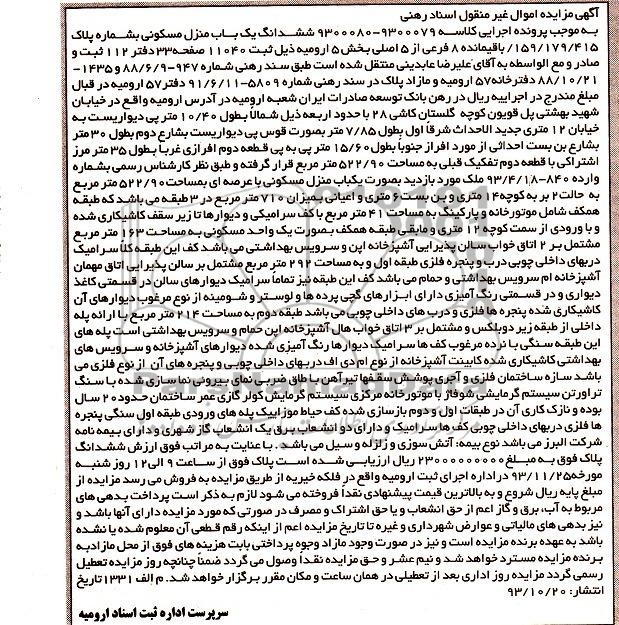 آگهی مزایده اموال غیر منقول اسناد رهنی
به موجب پرونده اجرایی کلاسه ۹۳۰۰۰۷۹-۹۳۰۰۰۸۰ ششدانگ یک باب منزل مسکونی بشماره پلاک
۱۵۹/۱۷۹/۴۱۵/ باقیمانده ۸ فرعی از ۵ اصلی بخش ۵ ارومیه ذیل ثبت ۱۱۰۴۰ صفحه ۳۳ دفتر ۱۱۲ ثبت و
صادر و مع الواسطه به آقای علیرضا عابدینی منتقل شده است طبق سند رهنی شماره ۹۴۷-۸۸/۶/۹ و ۱۴۳۵-
۸۸/۱۰/۲۱ دفترخانه ۵۷ ارومیه و مازاد پلاک در سند رهنی شماره ۵۸۰۹-۹۱/۶/۱۱ دفتر ۵۷ ارومیه در قبال
مبلغ مندرج در اجراییه ریال در رهن بانک توسعه صادرات ایران شعبه ارومیه در آدرس ارومیه واقع در خیابان
شهید بهشتی پل قویون کوچه گلستان کاشی ۲۸ با حدود اربعه ذیل شمالا بطول ۱۰/۴۰ متر پی دیواریست به
خیابان ۱۲ متری جدید الاحداث شرقا اول بطول ۷/۸۵ متر بصورت قوس پی دیواریست بشارع دوم بطول ۳۰ متر
بشارع بن بست احداثی از مورد افراز جنوبا بطول ۱۵/۶۰ متر پی به پی قطعه دوم افرازی غربا بطول ۳۵ متر مرز
اشتراکی با قطعه دوم تفکیک قبلی به مساحت ۵۲۲/۹۰ متر مربع قرار گرفته و طبق نظر کارشناس رسمی بشماره
وارده ۸۴۰-۹۳/۴/۱۸ ملک مورد بازدید بصورت یکباب منزل مسکونی با عرصه ای بمساحت ۵۲۲/۹۰ متر مربع
به حالت ۲ بر به کوچه ۱۴ متری و بن بست ۶ متری و اعیانی بمیزان ۷۱۰ متر مربع در ۳ طبقه می باشد که طبقه
همکف شامل موتورخانه و پارکینگ به مساحت ۴۱ متر مربع با کف سرامیکی و دیوارها تا زیر سقف کاشیکاری شده
و با ورودی از سمت کوچه ۱۲ متری و مابقی طبقه همکف بصورت یک واحد مسکونی به مساحت ۱۶۳ متر مربع
مشتمل بر ۲ اتاق خواب سالن پذیرایی آشپزخانه اپن و سرویس بهداشتی می باشد کف این طبقه کلا سرامیک
دربهای داخلی چوبی درب و پنجره فلزی طبقه اول و به مساحت ۲۹۲ متر مربع مشتمل بر سالن پذیرایی اتاق مهمان
آشپزخانه ام سرویس بهداشتی و حمام می باشد کف این طبقه نیز تماما سرامیک دیوارهای سالن در قسمتی کاغذ
دیواری و در قسمتی رنگ آمیزی دارای ابزارهای گچی پرده ها و لوستر و شومینه از نوع مرغوب دیوارهای آن
کاشیکاری شده پنجره ها فلزی و درب های داخلی چوبی می باشد طبقه دوم به مساحت ۲۱۴ متر مربع با ارائه پله
داخلی از طبقه زیر دوبلکس و مشتمل بر ۳ اتاق خواب هال آشپزخانه اپن حمام و سرویس بهداشتی است پله های
این طبقه سنگی با نرده مرغوب کف ها سرامیک دیوارها رنگ آمیزی شده دیوارهای آشپزخانه و سرویس های
بهداشتی کاشیکاری شده کابینت آشپزخانه از نوع ام دی اف دربهای داخلی چوبی و پنجره های آن از نوع فلزی می
باشد سازه ساختمان فلزی و آجری پوشش سقفها تیرآهن با طاق ضربی نمای بیرونی نماسازی شده با سنگ
تراورتن سیستم گرمایشی شوفاژ با موتورخانه مرکزی سیستم گرمایش کولر گازی عمر ساختمان حدود ۲۰ سال
بوده و نازک کاری آن در طبقات اول و دوم بازسازی شده کف حیاط موزاییک پله های ورودی طبقه اول سنگی پنجره
ها فلزی دربهای داخلی چوبی کف ها سرامیک و دارای دو انشعاب برق یک انشعاب گاز شهری و دارای بیمه نامه
شرکت البرز می باشد نوع بیمه: آتش سوزی و زلزله و سیل می باشد. با عنایت به مراتب فوق ارزش ششدانگ
پلاک فوق به مبلغ ۲۳۰۰۰۰۰۰۰۰۰ ریال ارزیابی شده است پلاک فوق از ساعت ۹ الی ۱۲ روز شنبه
مورخه ۹۳/۱۱/۲۵ در اداره اجرای ثبت ارومیه واقع در فلکه خیریه از طریق مزایده به فروش می رسد مزایده از
مبلغ پایه ریال شروع و به بالاترین قیمت پیشنهادی نقدا فروخته می شود لازم به ذکر است پرداخت بدهی های
مربوط به آب، برق و گاز اعم از حق انشعاب و یا حق اشتراک و مصرف در صورتی که مورد مزایده دارای آنها باشد و
نیز بدهی های مالیاتی و عوارض شهرداری و غیره تا تاریخ مزایده اعم از اینکه رقم قطعی آن معلوم شده یا نشده
باشد به عهده برنده مزایده است و نیز در صورت وجود مازاد وجوه پرداختی بابت هزینه های فوق از محل مازاد به
برنده مزایده مسترد خواهد شد و نیم عشر و حق مزایده نقدا وصول می گردد ضمنا چنانچه روز مزایده تعطیل
رسمی گردد مزایده روز اداری بعد از تعطیلی در همان ساعت و مکان مقرر برگزار خواهد شد. م الف ۱۳۳۱ تاریخ
انتشار: ۹۳/۱۰/۲۰
سرپرست اداره ثبت اسناد ارومیه